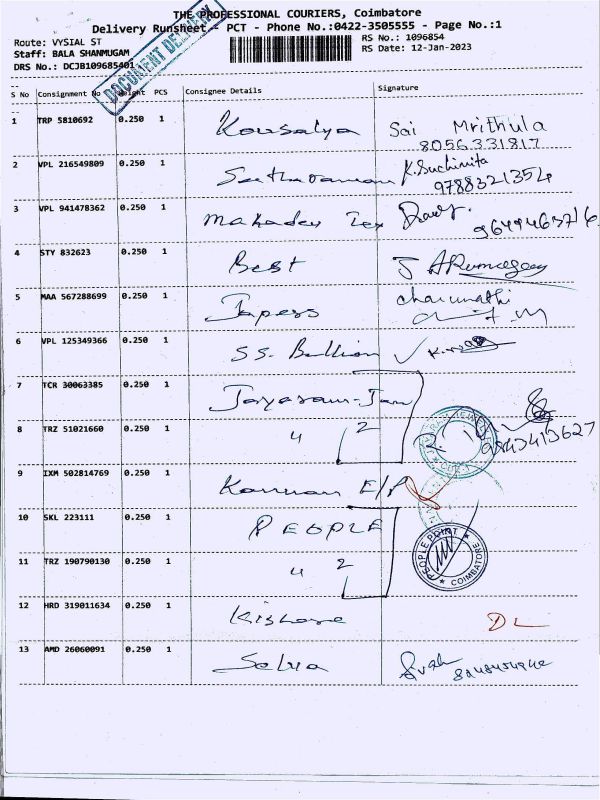 THE PROFESSIONAL COURIERS, Coimbatore
Delivery Runsheet - PCT - Phone No.:0422-3505555 - Page No.:1
Route: VYSIAL ST
RS No.: 1096854
Staff: BALA SHANMUGAM
RS Date: 12-Jan-2023
DRS No.: DCJB109685401
DOCUMENT DELIVERY
S No Consignment No Weight PCS Consignee Details Signature
1 TRP 5810692 0.250 1 Kousalya Sai Mrithula
8056331817
2 VPL 216549809 0.250 1 K.Suchimita
9788321354
3 VPL 941478362 0.250 1 Mahadev Tex
4 STY 832623 0.250 1 Best
5 MAA 567288699 0.250 1 charumathi
6 VPL 125349366 0.250 1 SS. Bullion
7 TCR 30063385 0.250 1
8 TRZ 51021660 0.250 1 4 2
9843413627
9 IXM 502814769 0.250 1 Kannan E/P
10 SKL 223111 0.250 1 PEOPLE
11 TRZ 190790130 0.250 1 4 2
PEOPLE PRINT COIMBATORE
12 HRD 319011634 0.250 1 Kishore DL
13 AMD 26060091 0.250 1 Selva